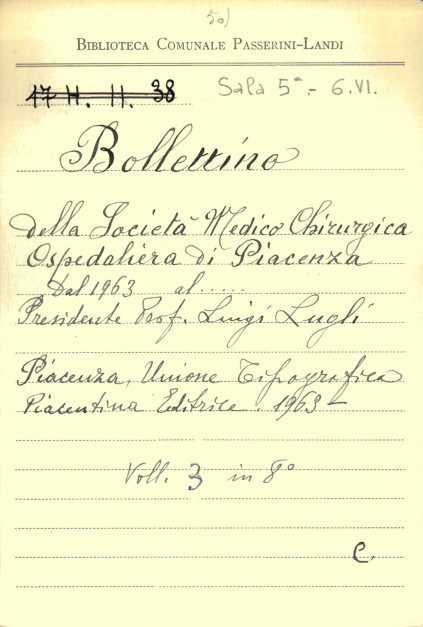 50)
BIBLIOTECA COMUNALE PASSERINI-LANDI
17 H. II. 38 Sala 5ª - 6.VI.
Bollettino
della Società Medico Chirurgica
Ospedaliera di Piacenza
Dal 1963 al.....
Presidente Prof. Luigi Lugli
Piacenza, Unione Tipografica
Piacentina Editrice. 1963-
Voll. 3 in 8º
C.